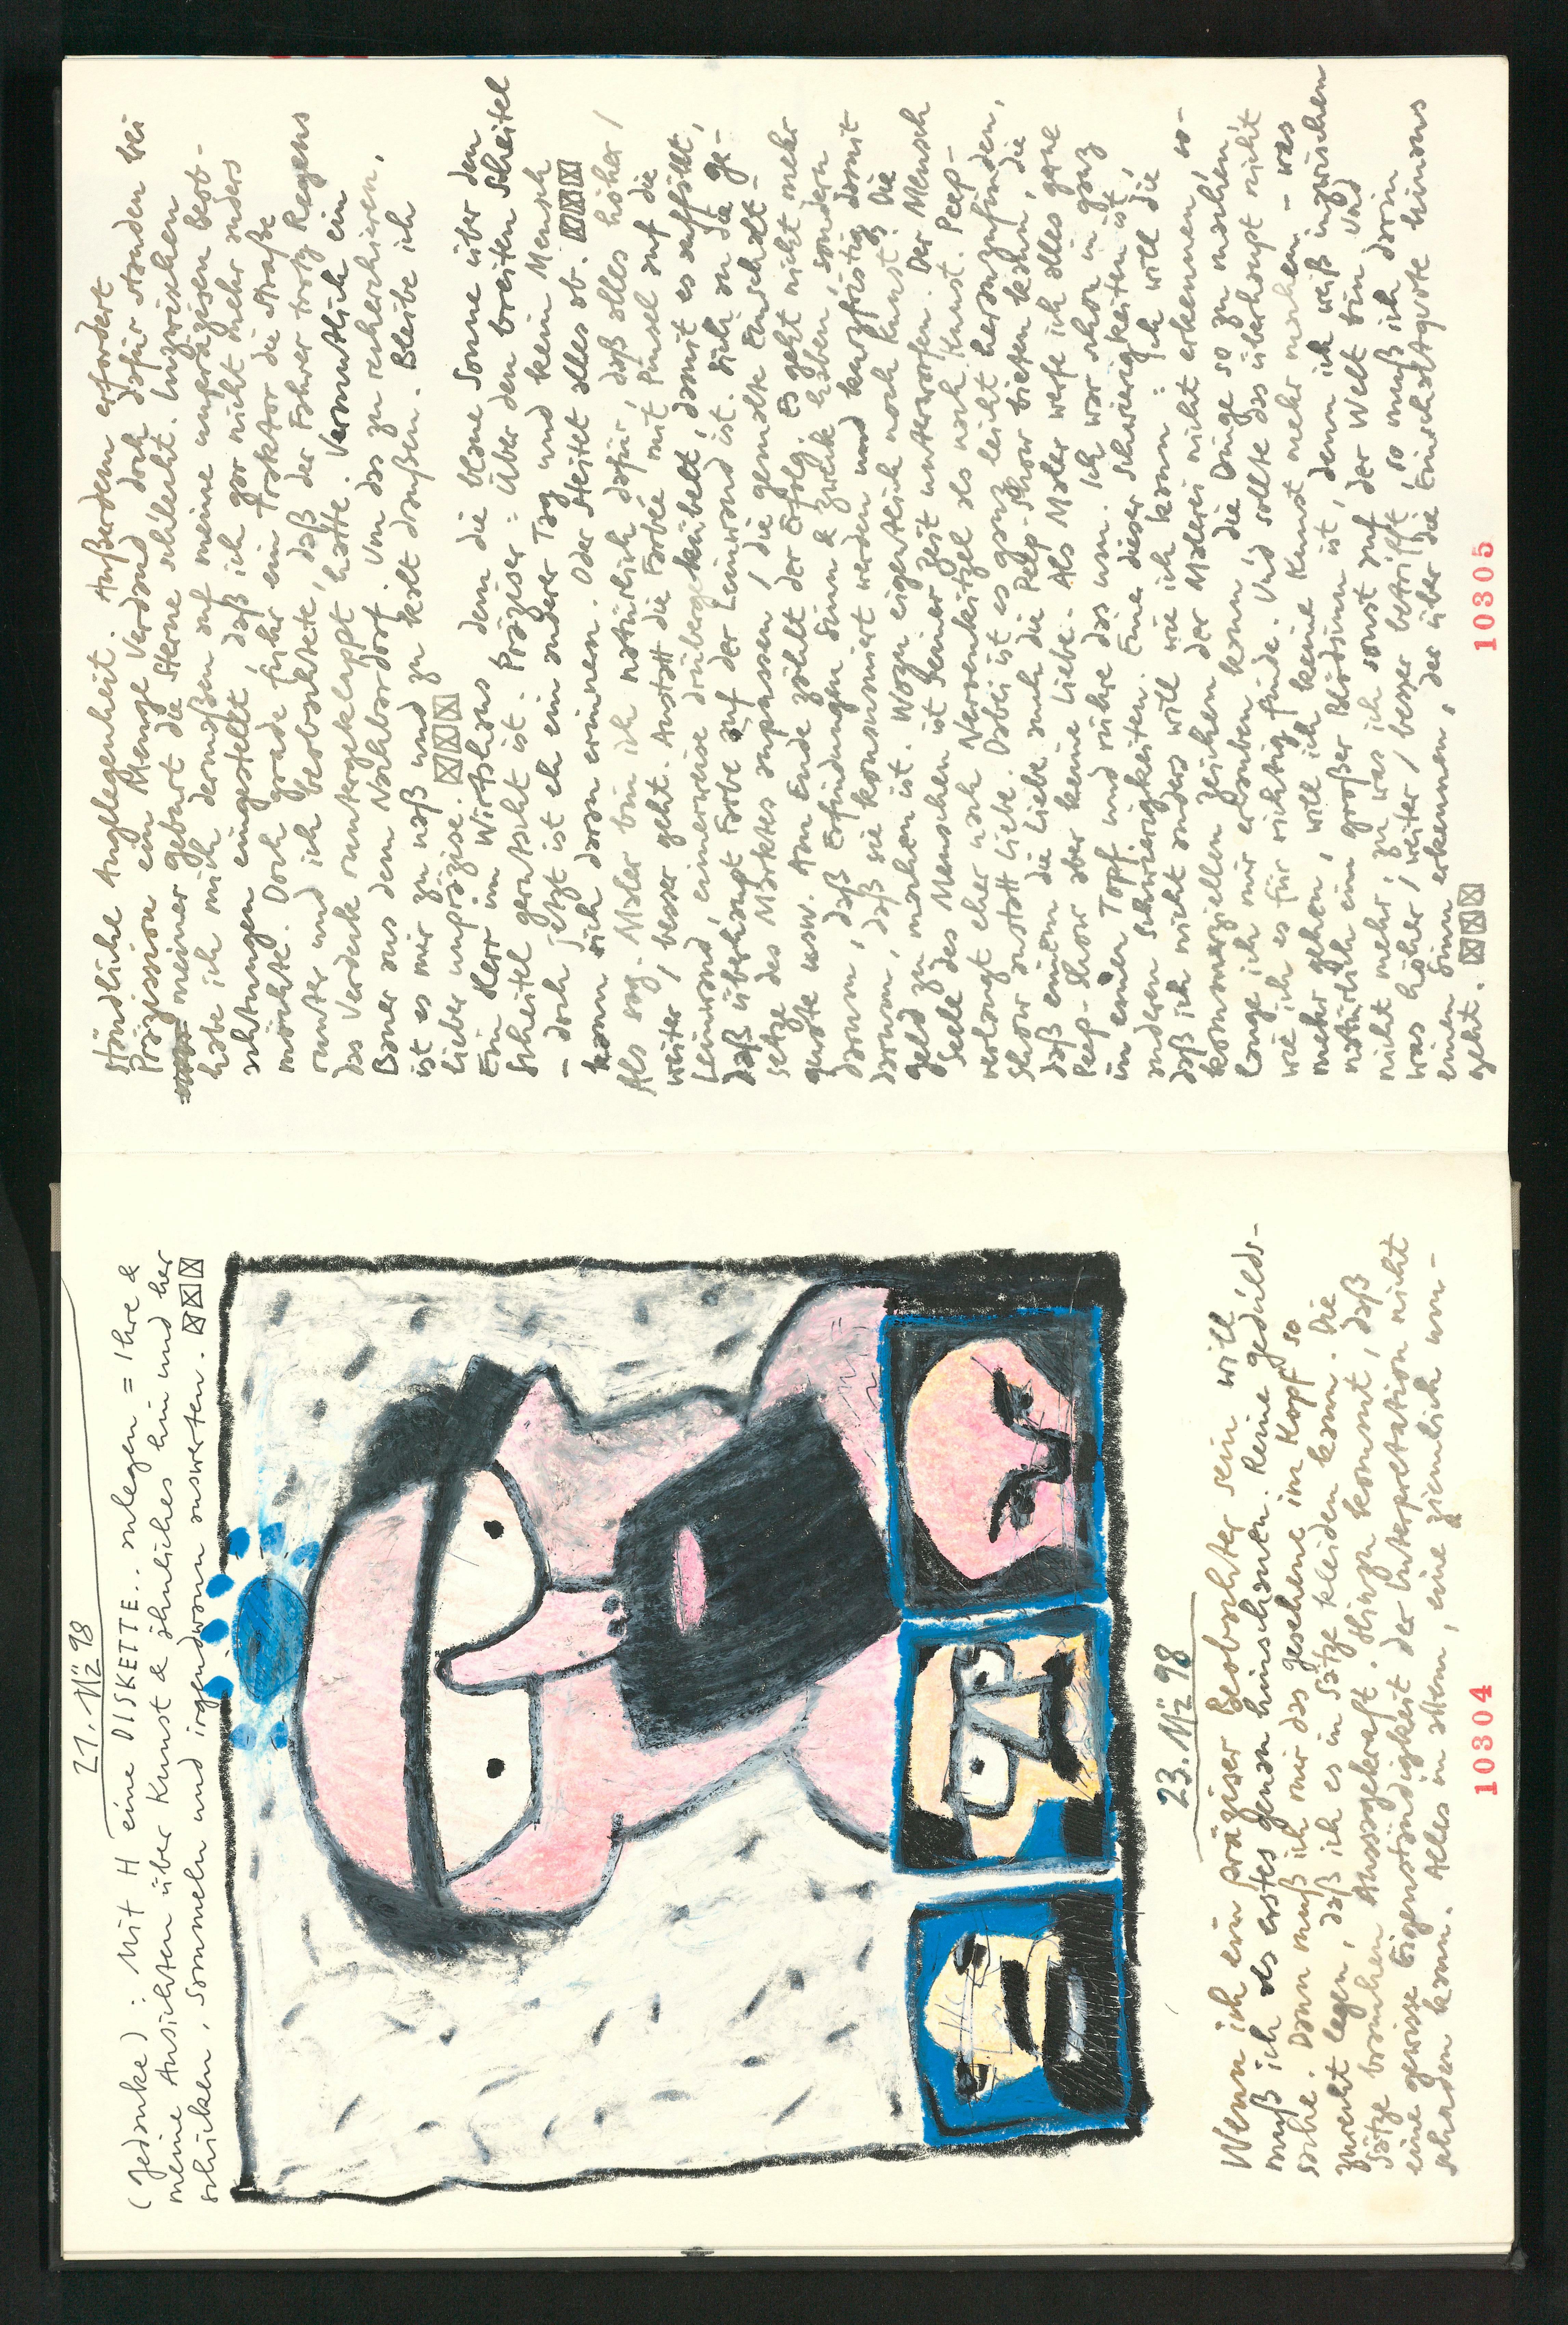 21. Mz 98
(Gedanke): Mit H eine DISKETTE.. anlegen = Ihre &
meine Ansichten über Kunst & ähnliches hin und her
schicken, sammeln und irgendwann auswerten. ☒☒☒
23. Mz 98
Wenn ich ein präziser Beobachter sein will
muß ich als erstes genau hinschauen. Reine Gedulds-
sache. Dann muß ich mir das gesehene im Kopf so
zurecht legen, daß ich es in Sätze kleiden kann. Die
Sätze brauchen Aussagekraft. Hinzu kommt, daß
eine gewisse Eigenständigkeit der Interpretation nicht
schaden kann. Alles in allem, eine ziemlich um-
10304
ständliche Angelegenheit. Außerdem erfordert
Präzision eine Menge Verstand doch dafür standen bei
meiner geburt die Sterne schlecht. Inzwischen
habe ich mich dermaßen auf meine unpräzisen beob-
achtungen eingestellt, daß ich gar nicht mehr anders
möchte. Doch grade fuhr ein Traktor die Straße
runter und ich beobachtete, daß der Fahrer trotz Regens
das Verdeck runtergeklappt hatte. Vermutlich ein
Bauer aus dem Nachbardorf. Um das zu recherchieren,
ist es mir zu naß und zu kalt draußen. Bleibe ich
lieber unpräzise. ☒☒☒☒
Ein Herr im Wirtshaus dem die blaue Sonne über den
Scheitel gerutscht ist. Präziser: Über den breiten Scheitel
– doch jetzt ist eh ein anderer Tag und kein Mensch
kann sich daran erinnern. Oder streitet alles ab. ☒☒☒
Als sog. Maler bin ich natürlich dafür, daß alles höher/
weiter/besser geht. Anstatt die Farbe mit Pinsel auf die
Leinwand, eimerweise drübergekübelt, damit es auffällt,
daß überhaupt Farbe auf der Leinwand ist. Sich an die ge-
setze des Marktes anpassen / die gemalte Einschalt-
quote usw. Am Ende zählt der Erfolg. Es geht nicht mehr
darum, daß Erfindungen Sinn & Zweck haben, sondern
darum, daß sie konsumiert werden und kurzfristig damit
geld zu machen ist. Wozu eigentlich noch kunst? Die
Seele des Menschen ist seiner zeit unterworfen. Der Mensch
verlangt eher nach Nervenkitzel als nach Kunst. Peep-
Show anstatt Liebe. Dabei ist es ganz leicht herauszufinden,
daß einem die Liebe auch die Peep-Show bieten kann, die
Peep-Show aber keine Liebe. Als Maler werfe ich alles gerne
in einen Topf und rühre das um. Ich war schon in ganz
anderen Schwierigkeiten. Eine dieser Schwierigkeiten ist,
daß ich nicht anders will wie ich kann: Ich will die
kommerziellen zeichen der Malerei nicht erkennen, so-
lange ich mir erlauben kann, die Dinge so zu machen,
wie ich es für richtig finde. Und sollte das überhaupt nicht
mehr gehen, will ich keine Kunst mehr machen – was
natürlich ein großer Blödsinn ist, denn ich weiß inzwischen
nicht mehr, zu was ich sonst auf der Welt bin. Und
was höher/weiter/besser betrifft, so muß ich darin
einen Sinn erkennen, der über die Einschaltquote hinaus
geht. ☒☒☒☒
10305